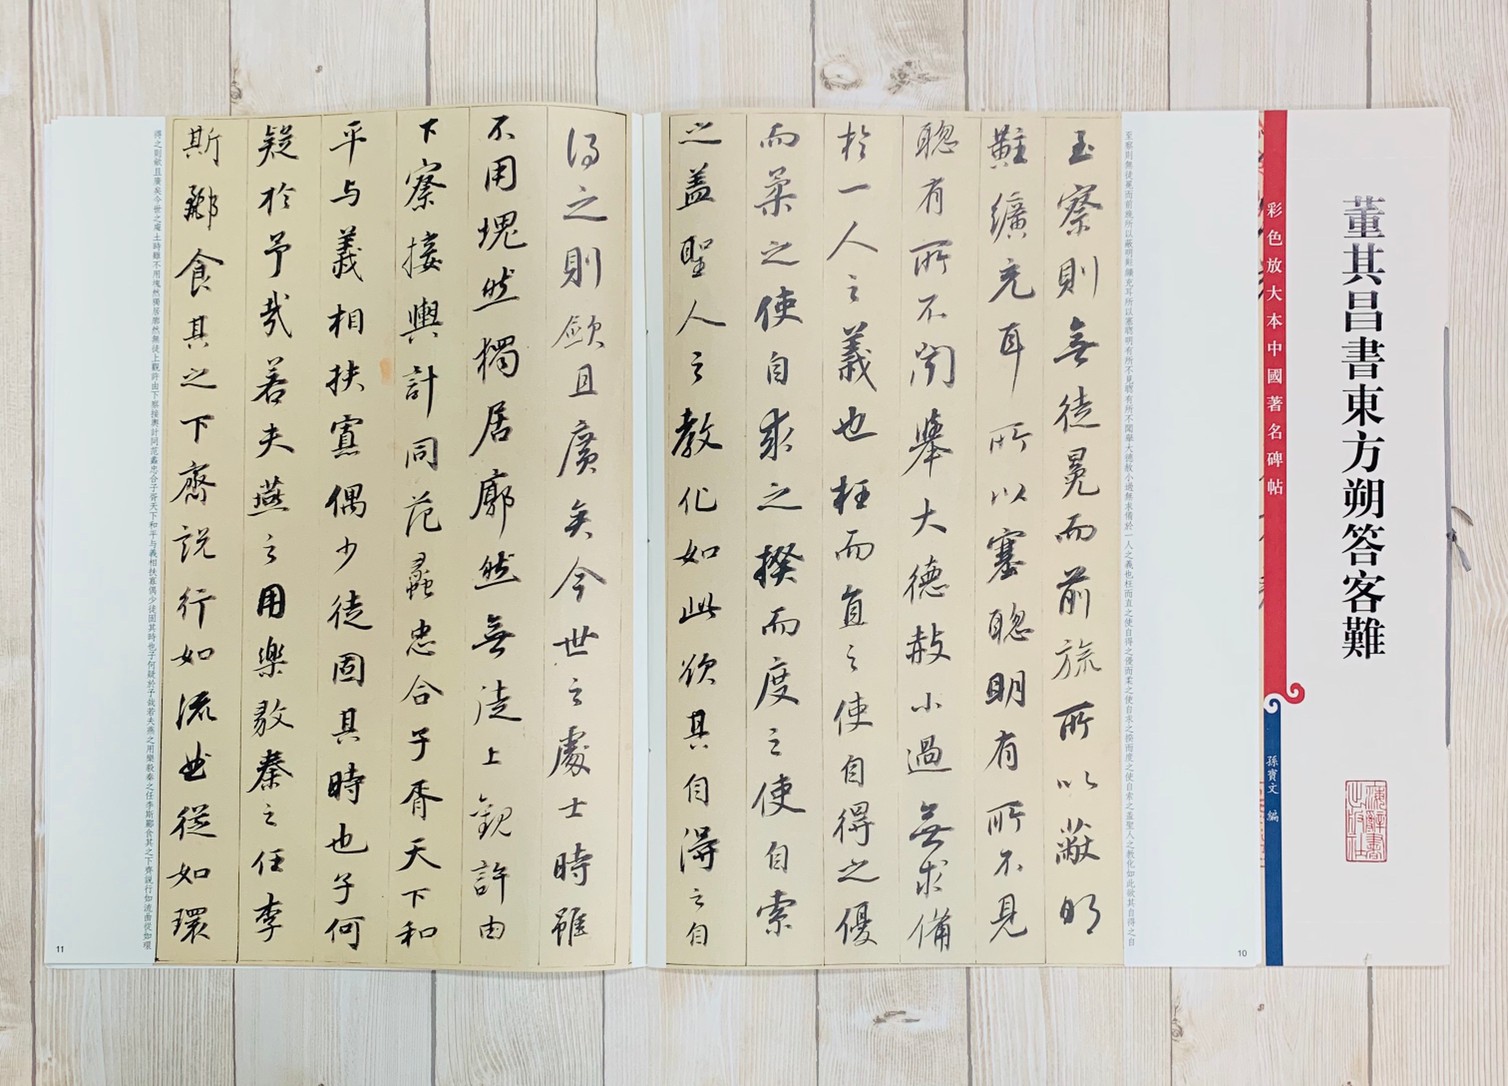 董其昌書東方朔答客難
彩色放大本中國著名碑帖
孫寶文 編
至察則無徒冕而前旒所以蔽明黈纊充耳所以塞聰明有所不見聰有所不聞舉大德赦小過無求備於一人之義也枉而直之使自得之優而柔之使自求之揆而度之使自索之蓋聖人之教化如此欲其自得之自
至察則無徒冕而前旒所以蔽明
黈纊充耳所以塞聰明有所不見
聰有所不聞舉大德赦小過無求備
於一人之義也枉而直之使自得之優
而柔之使自求之揆而度之使自索
之蓋聖人之教化如此欲其自得之自
10
得之則敏且廣矣今世之處士時雖
不用塊然獨居廓然無徒上觀許由
下察接輿計同范蠡忠合子胥天下和
平与義相扶寡偶少徒固其時也子何
疑於予哉若夫燕之用樂毅秦之任李
斯酈食其之下齊說行如流曲從如環
得之則敏且廣矣今世之處士時雖不用塊然獨居廓然無徒上觀許由下察接輿計同范蠡忠合子胥天下和平与義相扶寡偶少徒固其時也子何疑於予哉若夫燕之用樂毅秦之任李斯酈食其之下齊說行如流曲從如環
11